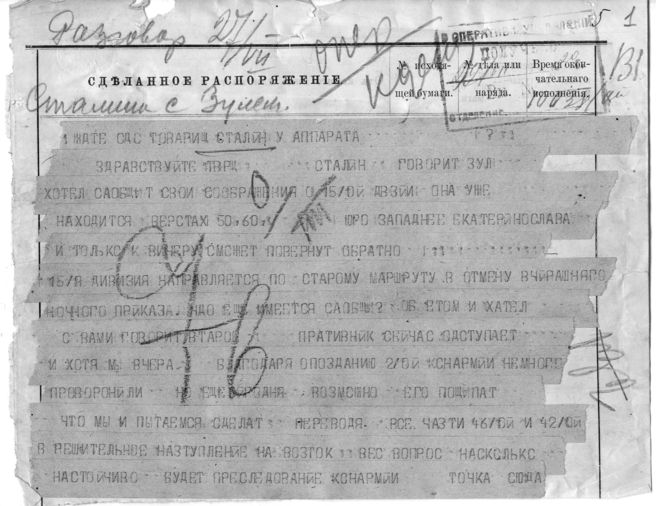 Разговор 27/VII
опер
1
В ОПЕРАТИВ
ПОЛУЧЕНО
СДѢЛАННОЕ РАСПОРЯЖЕНІЕ
Сталина с Зулем.
№ исходя-
щей бумаги.
№ дѣла или
наряда.
Время окон-
чательнаго
исполненія.
МАТЕ СДС ТОВАРИЩ СТАЛИН У АППАРАТА
ЗДРАВСТВУЙТЕ ТВРЩ СТАЛИН ГОВОРИТ ЗУЛ
ХОТЕЛ САОБЩИТ СВОИ СООБРАШЕНИЯ О 15/ОЙ ДВЗИИ ОНА УШЕ
НАХОДИТСЯ ВЕРСТАХ 50,60, ЮГО ЗАПАДНЕЕ ЕКАТЕРИНОСЛАВА
И ТОЛЬКО К ВИЧЕРУ СМОЖЕТ ПОВЕРНУТ ОБРАТНО
15/Я ДИВИЗИЯ НАПРАВЛЯЕТСЯ ПО СТАРОМУ МАРШРУТУ В ОТМЕНУ ВЧИРАШНЯГО
НОЧНОГО ПРИКАЗА. НАДО ЕЩЕ ИМЕЕТСЯ САОБЩИ? ОБ ЕТОМ И ХАТЕЛ
С ВАМИ ГОВОРИТ ВТАРОЕ ПРАТИВНИК СЕЙЧАС ОДСТУПАЕТ
И ХОТЯ МЫ ВЧЕРА. БЛАГОДАРЯ ОПОЗДАНИЮ 2/ОЙ КОНАРМИИ НЕМНОГО
ПРОВОРОНИЛИ НО ЕЩЕ ВОЗМОШНО ЕГО ПОЩИПАТ
ЧТО МЫ И ПЫТАЕМСЯ СДЕЛАТ ПЕРЕВОДЯ. ВСЕ. ЧАЗТИ 46/ОЙ И 42/ОЙ
В РЕШИТЕЛЬНОЕ НАЗТУПЛЕНИЕ НА ВОЗТОК ВЕС ВОПРОС НАСКОЛЬКС
НАСТОЙЧИВО БУДЕТ ПРЕСЛЕДОВАНИЕ КОНАРМИИ ТОЧКА СЮДА